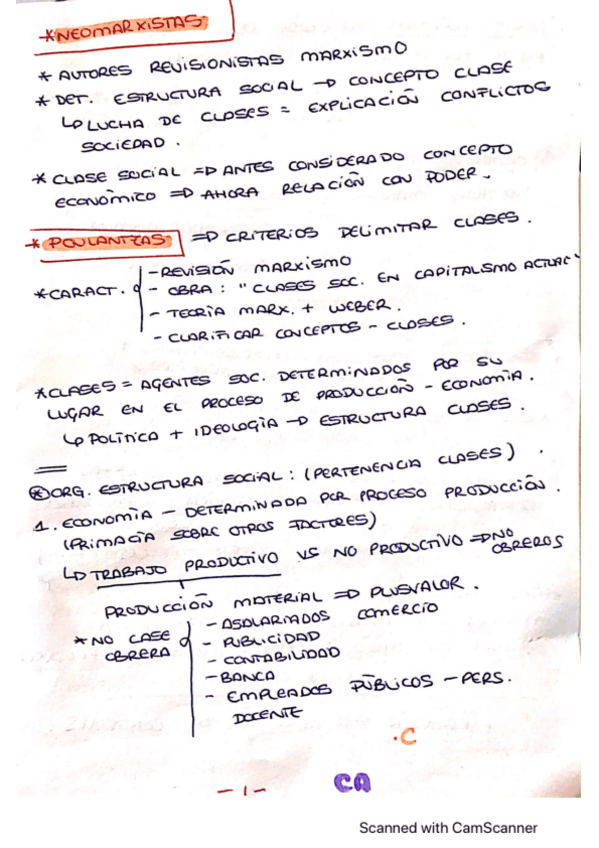 * NEOMARXISTAS
* AUTORES REVISIONISTAS MARXISMO
* DET. ESTRUCTURA SOCIAL → CONCEPTO CLASE
↳ LUCHA DE CLASES = EXPLICACIÓN CONFLICTOS
SOCIEDAD.
* CLASE SOCIAL ⇒ ANTES CONSIDERADO CONCEPTO
ECONÓMICO ⇒ AHORA RELACIÓN CON PODER.
* POULANTZAS ⇒ CRITERIOS DELIMITAR CLASES.
- REVISIÓN MARXISMO
* CARACT. - OBRA: "CLASES SOC. EN CAPITALISMO ACTUAL"
- TEORÍA MARX. + WEBER.
- CLARIFICAR CONCEPTOS - CLASES.
* CLASES = AGENTES SOC. DETERMINADOS POR SU
LUGAR EN EL PROCESO DE PRODUCCIÓN - ECONOMÍA.
↳ POLÍTICA + IDEOLOGÍA → ESTRUCTURA CLASES.
* ORG. ESTRUCTURA SOCIAL: (PERTENENCIA CLASES).
1. ECONOMÍA - DETERMINADA POR PROCESO PRODUCCIÓN.
(PRIMACÍA SOBRE OTROS FACTORES)
↳ TRABAJO PRODUCTIVO VS NO PRODUCTIVO ⇒ NO
OBREROS
PRODUCCIÓN MATERIAL ⇒ PLUSVALOR.
- ASALARIADOS COMERCIO
* NO CASE - PUBLICIDAD
OBRERA - CONTABILIDAD
- BANCA
- EMPLEADOS PÚBLICOS - PERS.
DOCENTE
.C
- 1 - CA
Scanned with CamScanner